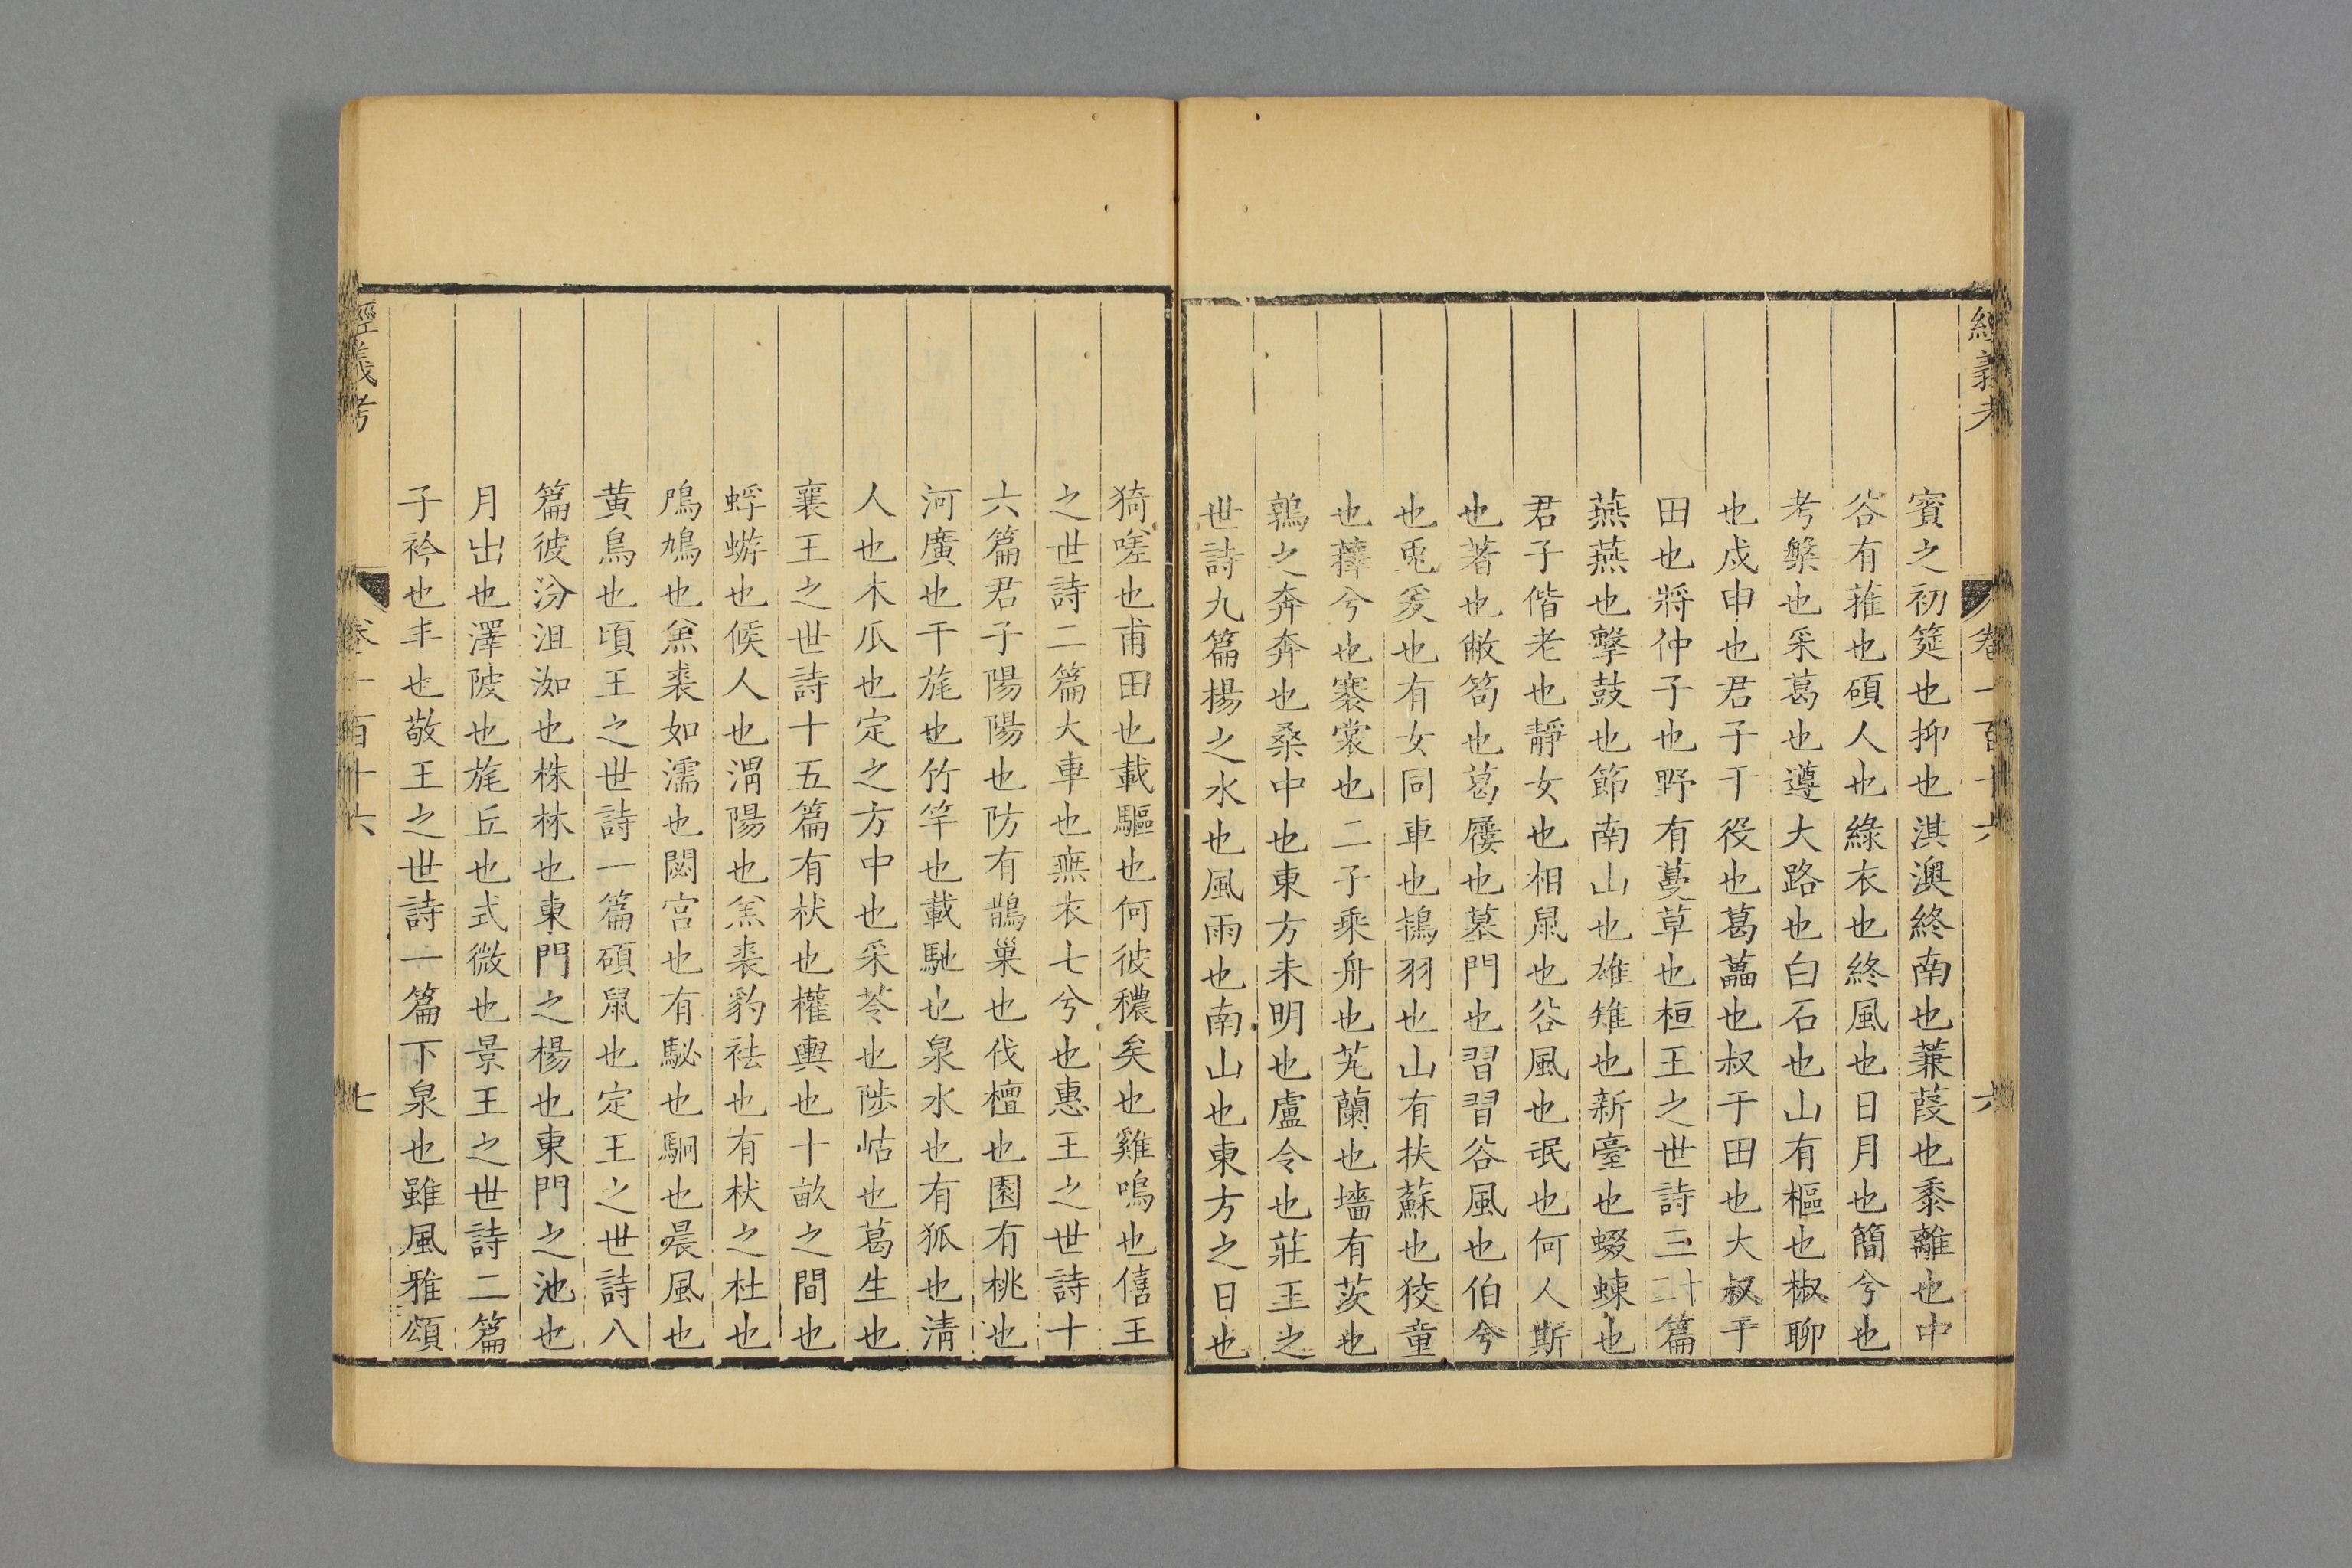 經義考 卷一百十六 六
賓之初筵也抑也淇澳終南也蒹葭也黍離也中
谷有蓷也碩人也綠衣也終風也日月也簡兮也
考槃也采葛也遵大路也白石也山有樞也椒聊
也戍申也君子于役也葛藟也叔于田也大叔于
田也將仲子也野有蔓草也桓王之世詩三二十篇
燕燕也擊鼓也節南山也雄雉也新臺也蝃蝀也
君子偕老也靜女也相鼠也谷風也氓也何人斯
也著也敝笱也葛屨也墓門也習習谷風也伯兮
也兎爰也有女同車也鴇羽也山有扶蘇也狡童
也蘀兮也褰裳也二子乘舟也芄蘭也墻有茨也
鶉之奔奔也桑中也東方未明也盧令也莊王之
世詩九篇揚之水也風雨也南山也東方之日也
猗嗟也甫田也載驅也何彼穠矣也雞鳴也僖王
之世詩二篇大車也無衣七兮也惠王之世詩十
六篇君子陽陽也防有鵲巢也伐檀也園有桃也
河廣也干旄也竹竿也載馳也泉水也有狐也清
人也木瓜也定之方中也采苓也陟岵也葛生也
襄王之世詩十五篇有杕也權輿也十畝之間也
蜉蝣也候人也渭陽也羔裘豹祛也有杕之杜也
鳲鳩也羔裘如濡也閟宮也有駜也駉也晨風也
黄鳥也頃王之世詩一篇碩鼠也定王之世詩八
篇彼汾沮洳也株林也東門之楊也東門之池也
月出也澤陂也旄丘也式微也景王之世詩二篇
子衿也丰也敬王之世詩一篇下泉也雖風雅頌
經義考 卷一百十六 七